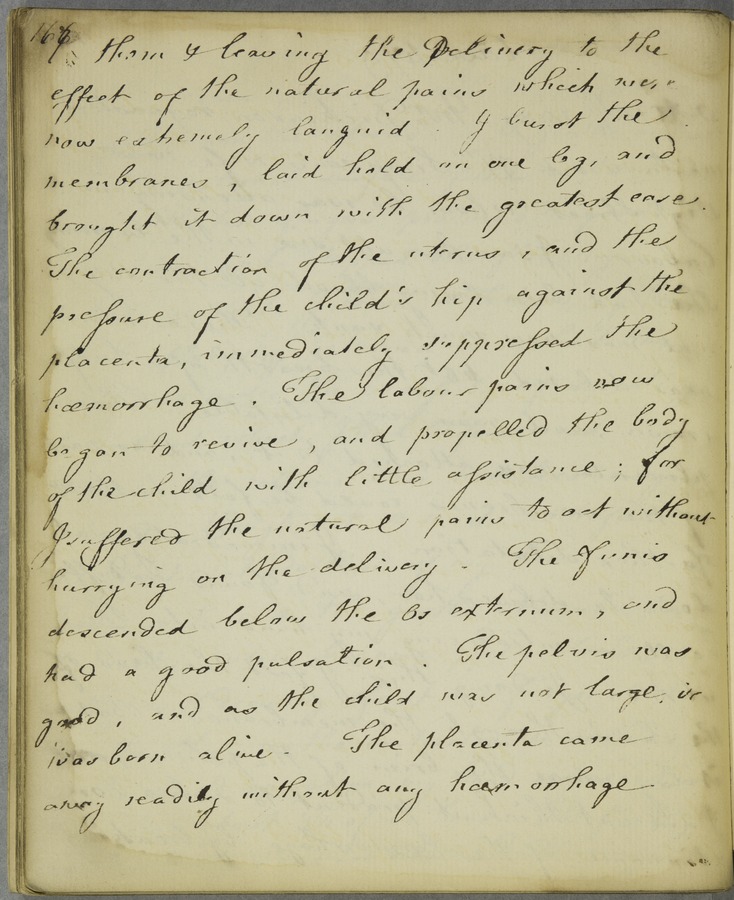 them & leaving the Delivery to the
effect of the natural pains which were
now extremely languid. I burst the
membranes, laid hold on one leg, and
brought it down with the greatest ease.
The contraction of the uterus, and the
pressure of the child's hip against the
placenta, immediately suppressed the
hæmorrhage. The labour pains now
began to revive, and propelled the body
of the child with little assistance; for
I suffered the natural pains to act without
hurrying on the delivery. The funis
descended below the Os externum, and
had a good pulsation. The pelvis was
good, and as the child was not large, it
was born alive. The placenta came
away readily without any hæmorrhage